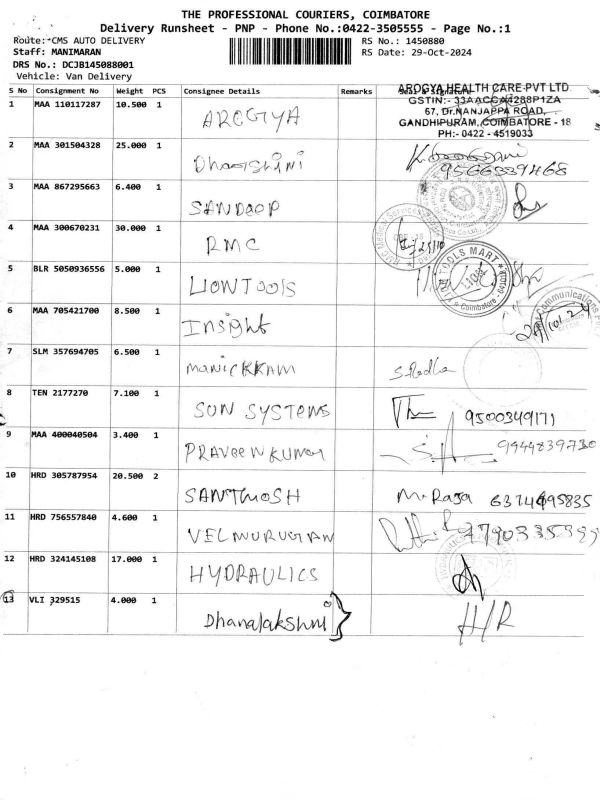 THE PROFESSIONAL COURIERS, COIMBATORE
Delivery Runsheet - PNP - Phone No.:0422-3505555 - Page No.:1
Route: CMS AUTO DELIVERY RS No.: 1450880
Staff: MANIMARAN RS Date: 29-Oct-2024
DRS No.: DCJB145088001
Vehicle: Van Delivery
S No Consignment No Weight PCS Consignee Details Remarks Seal & Signature
AROGYA HEALTH CARE PVT LTD
GSTIN:- 33AACCA4288P1ZA
67, Dr.NANJAPPA ROAD,
GANDHIPURAM, COIMBATORE - 18
PH:- 0422 - 4519033
1 MAA 110117287 10.500 1 AROGYA
2 MAA 301504328 25.000 1 Dharshini 9566339468
3 MAA 867295663 6.400 1 SANDOOP
4 MAA 300670231 30.000 1 RMC 25/10
5 BLR 5050936556 5.000 1 LIONTOOLS
TOOLS MART
Coimbatore
6 MAA 705421700 8.500 1 Insight
Communications
7 SLM 357694705 6.500 1 manickkam S. Radha
8 TEN 2177270 7.100 1 SUN SYSTEMS 9500349171
9 MAA 400040504 3.400 1 PRAVEEN KUMAR 9944839730
10 HRD 305787954 20.500 2 SANTHOSH M. Raja 6374495835
11 HRD 756557840 4.600 1 VELMURUGAN
12 HRD 324145108 17.000 1 HYDRAULICS
13 VLI 329515 4.000 1 Dhanalakshmi H/R